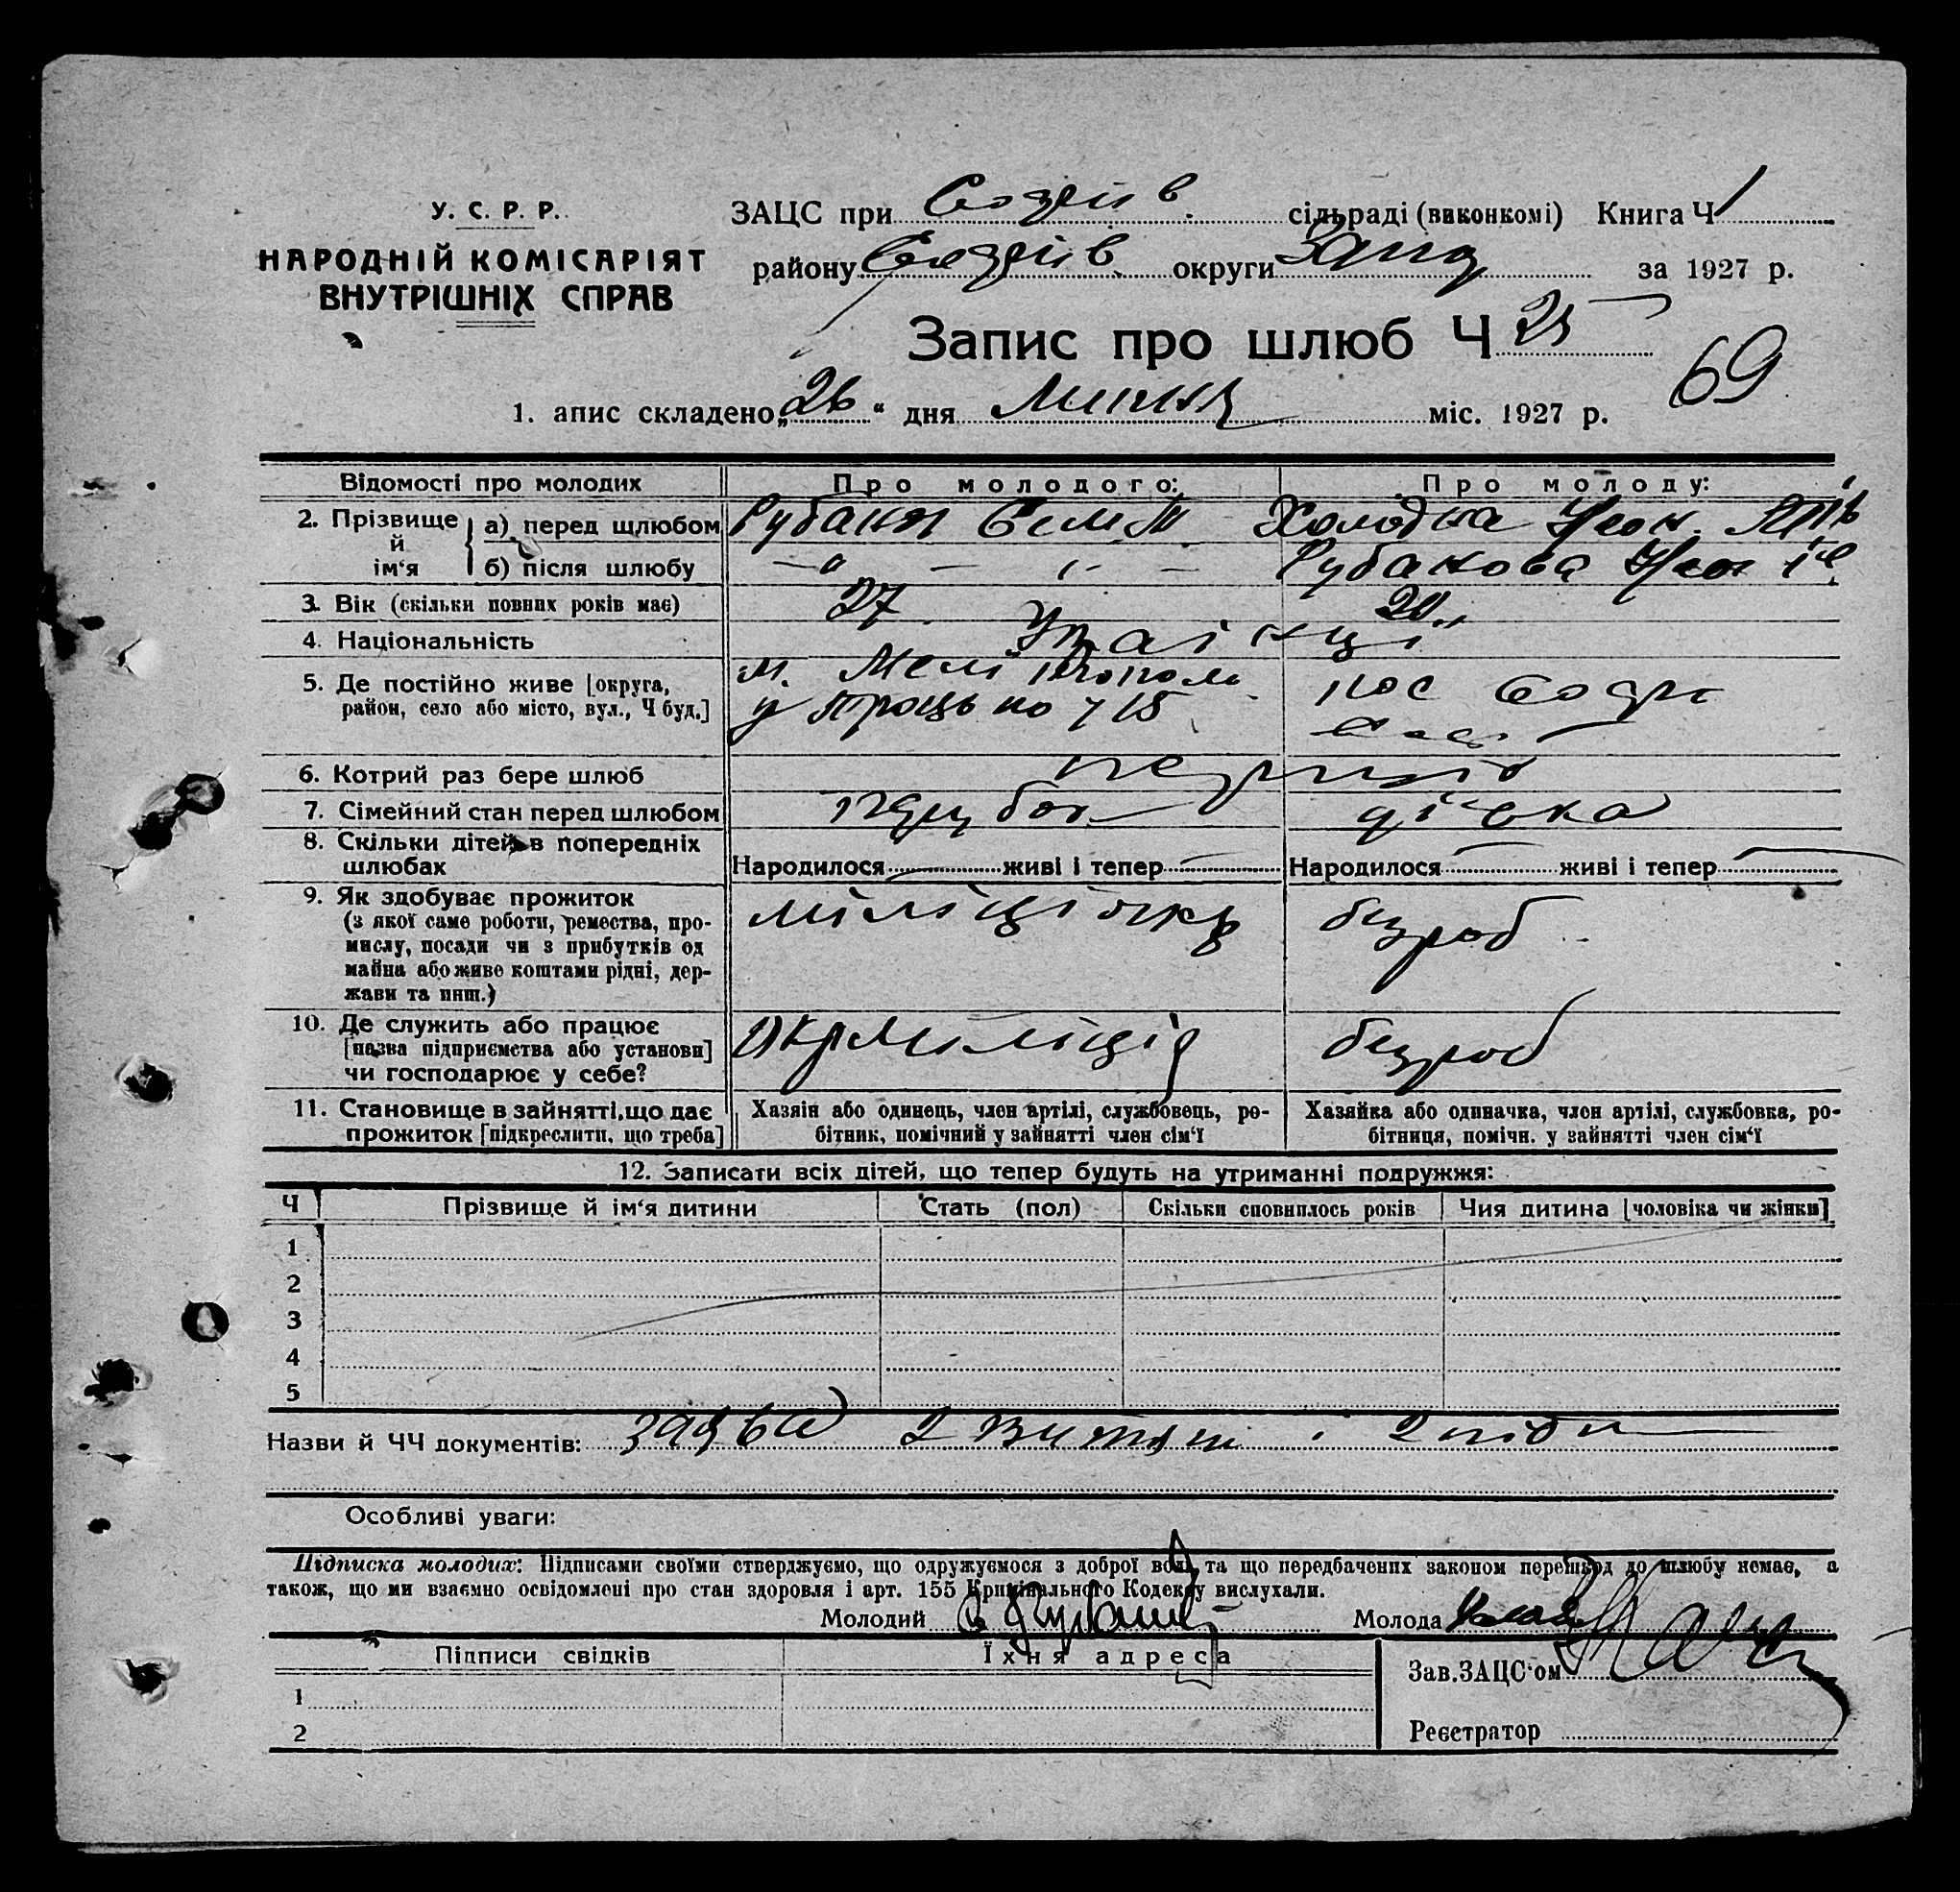 У. С. Р. Р.
НАРОДНІЙ КОМІСАРІЯТ
ВНУТРІШНІХ СПРАВ
ЗАЦС при сільраді (виконкомі) Книга Ч 1
району округи за 1927 р.
Запис про шлюб Ч 25
69
1. апис складено „26“ дня Липня міс. 1927 р.
Відомості про молодих
Про молодого:
Про молоду:
2. Прізвище й ім‘я
а) перед шлюбом
Рубакин
Холодна
б) після шлюбу
Рубакова
3. Вік (скільки повних років має)
27
20
4. Національність
Українці
5. Де постійно живе [округа,
район, село або місто, вул., Ч буд.]
м. Мелітополь
6. Котрий раз бере шлюб
7. Сімейний стан перед шлюбом
парубок
дівка
8. Скільки дітей в попередніх
шлюбах
Народилося живі і тепер
Народилося живі і тепер
9. Як здобуває прожиток
(з якої саме роботи, ремества, про-
мислу, посади чи з прибутків од
майна або живе коштами рідні, дер-
жави та инш.)
міліціонер
безроб
10. Де служить або працює
[назва підприємства або установи]
чи господарює у себе?
Окрміліція
безроб
11. Становище в зайнятті, що дає
прожиток [підкреслити, що треба]
Хазяін або одинець, член артілі, службовець, ро-
бітник, помічний у зайнятті член сім‘ї
Хазяйка або одиначка, член артілі, службовка, ро-
бітниця, помічн. у зайнятті член сім‘ї
12. Записати всіх дітей, що тепер будуть на утриманні подружжя:
Ч Прізвище й ім‘я дитини Стать (пол) Скільки сповнилось років Чия дитина [чоловіка чи жінки]
1
2
3
4
5
Назви й ЧЧ документів: заява 2
Особливі уваги:
Підписка молодих: Підписами своїми стверджуємо, що одружуємося з доброї волі та що передбачених законом перешкод до шлюбу немає, а
також, що ми взаємно освідомлені про стан здоровля і арт. 155 Кримінального Кодексу вислухали.
Молодий Молода
Підписи свідків Їхня адреса
Зав. ЗАЦС‘ом
1
2
Реєстратор